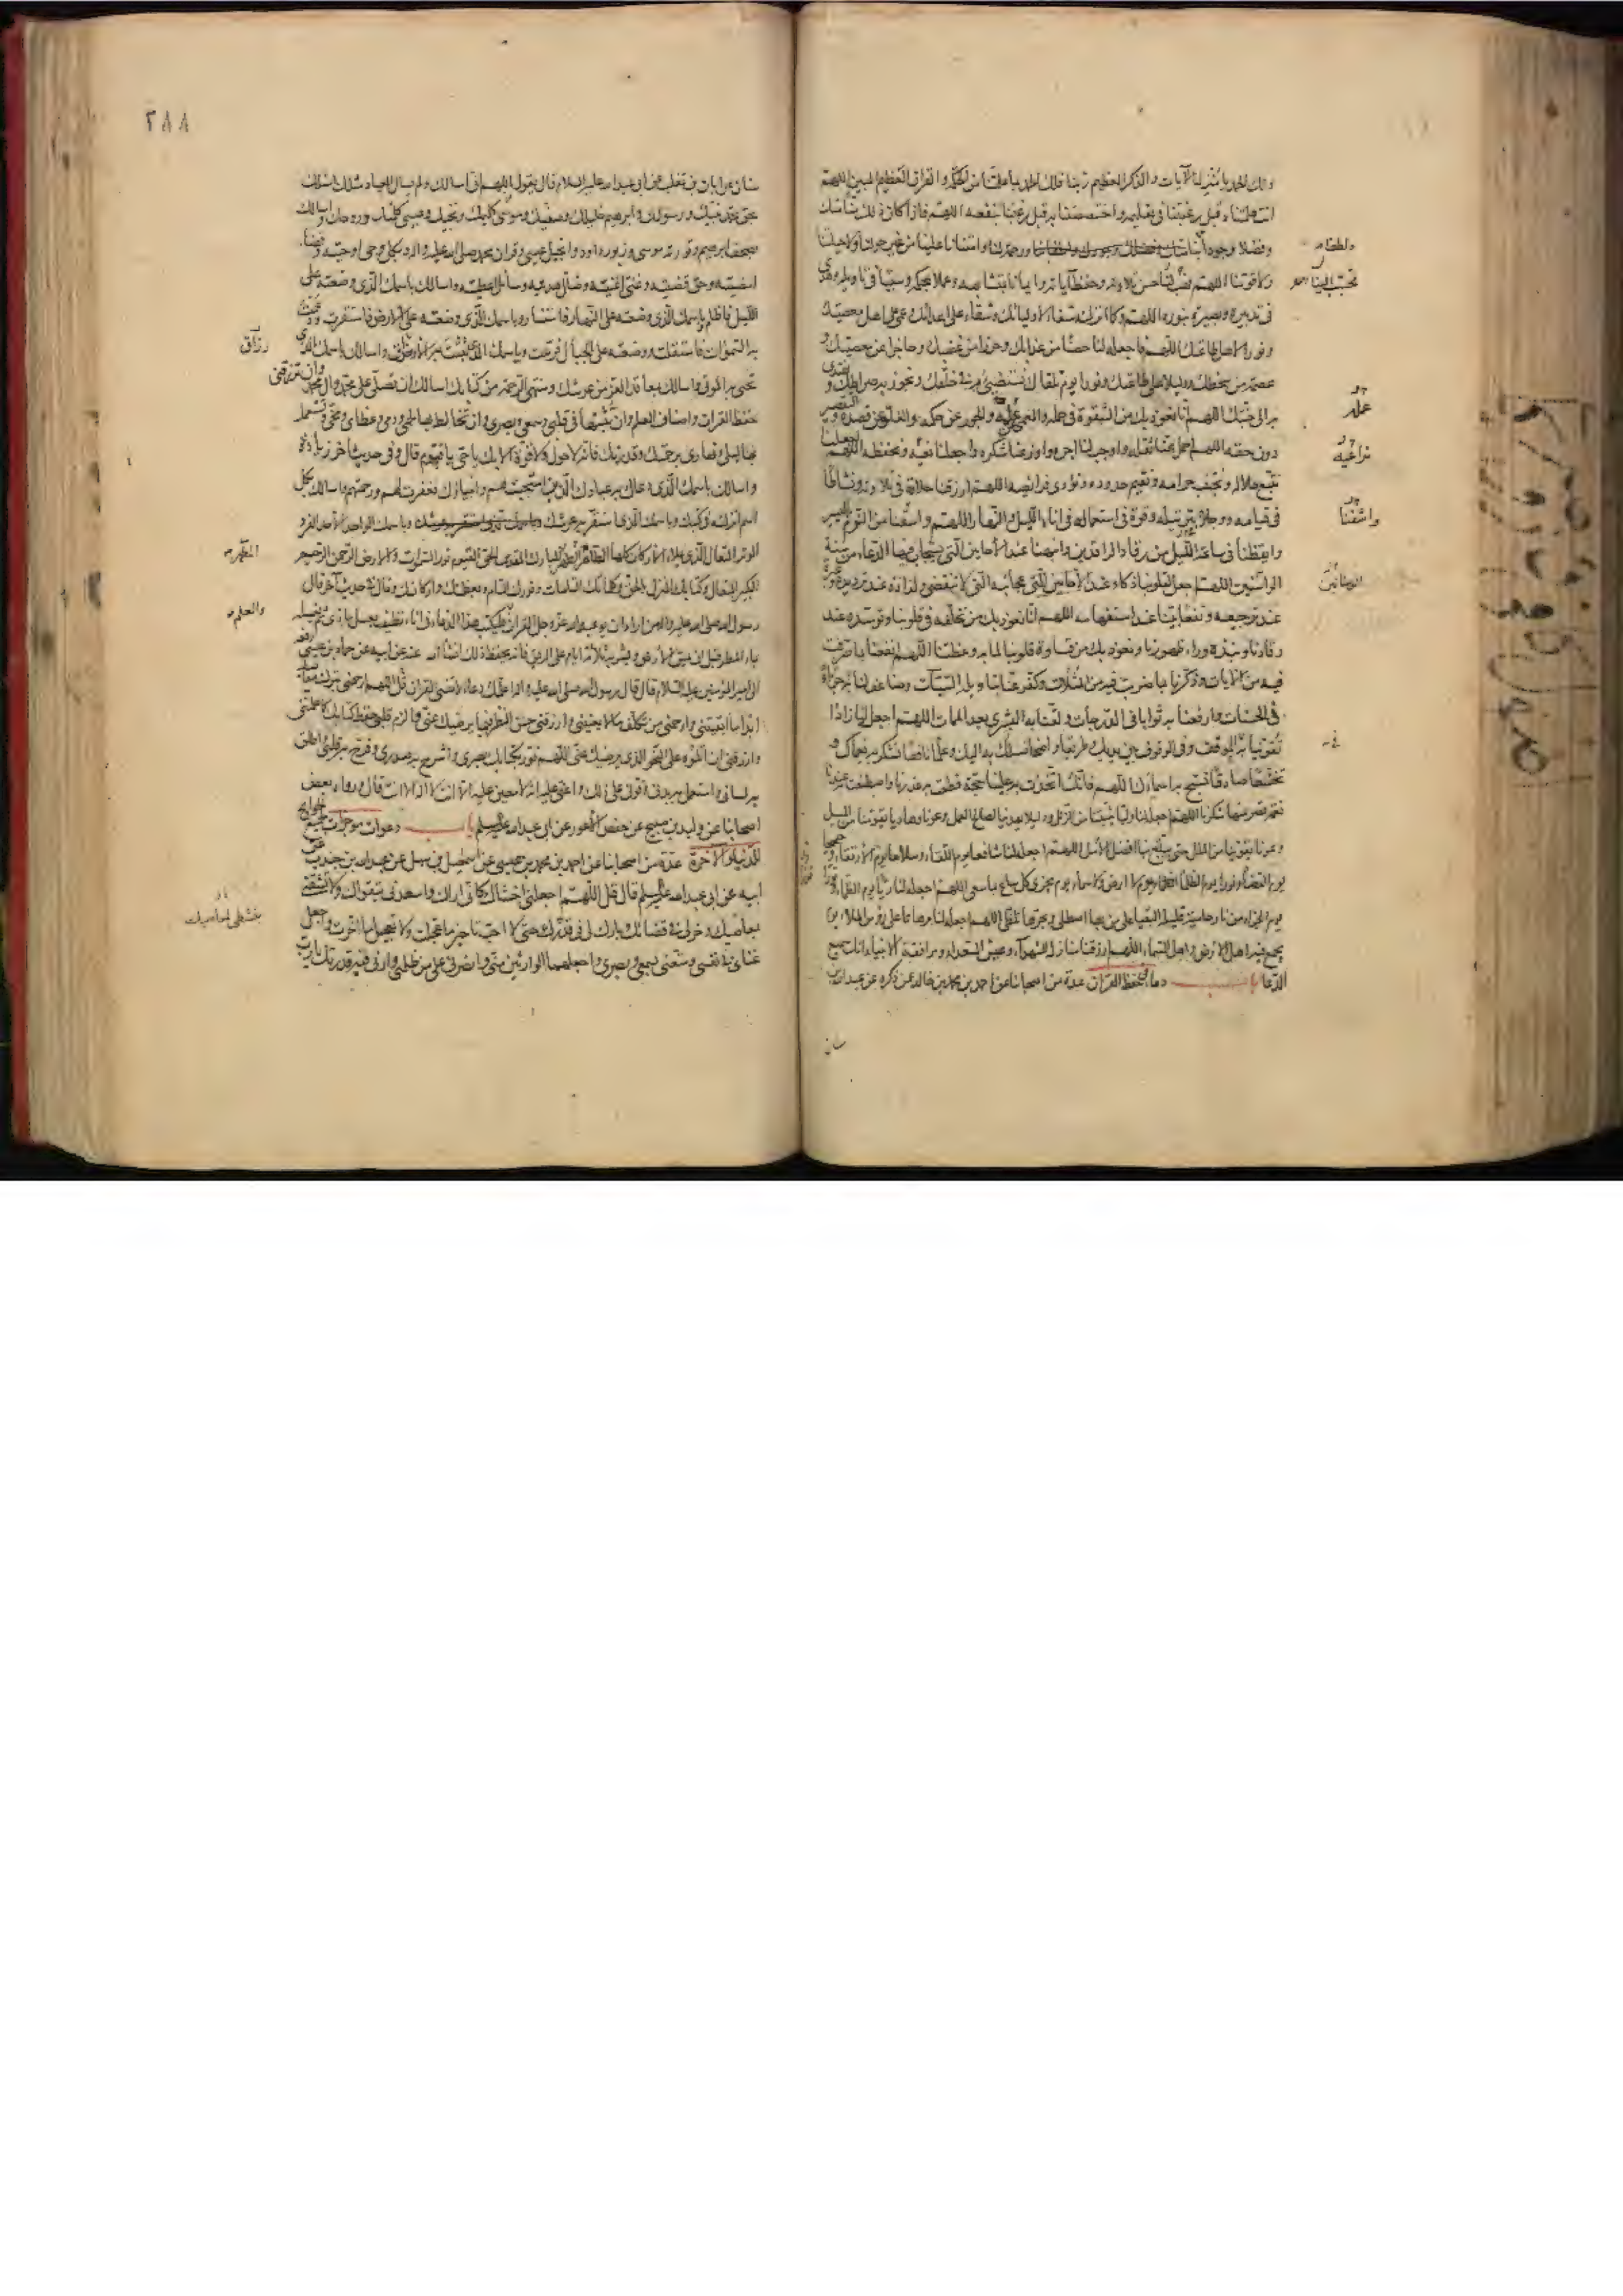 ولك الحمد يا منزل الآيات والذكر العظيم ربنا فلك الحمد بما علمتنا من الحكمة والقرآن العظيم المبين اللهم
انت علمتناه قبل رغبتنا في تعليمه واختصصتنا به قبل رغبتنا بنفعه اللهم فاذا كان ذلك منا منك
وفضلا وجودا ورحمة لنا وامتنانا علينا من غير حولنا ولا حيلتنا
ولا قوتنا اللهم فحبب لنا حسن تلاوته وحفظ آياته وايمانا بمتشابهه وعملا بمحكمه وسببا في تاويله وهدى
في تدبيره وبصيرة بنوره اللهم وكما انزلته شفاء لاوليائك وشقاء على اعدائك وعمى على اهل معصيتك
ونورا لاهل طاعتك اللهم فاجعله لنا حصنا من عذابك وحرزا من غضبك وحاجزا عن معصيتك و
عصمة من سخطك ودليلا على طاعتك ونورا يوم نلقاك نستضيء به في خلقك ونجوز به صراطك و نهتدي
به الى جنتك اللهم انا نعوذ بك من الشقوة في حمله والعمى عن علمه والجور عن حكمه والغلو عن قصده و التقصير
دون حقه اللهم احمل عنا ثقله واوجب لنا اجره واوزعنا شكره واجعلنا نعيه ونحفظه اللهم اجعلنا
نتبع حلاله ونجتنب حرامه ونقيم حدوده ونؤدي فرائضه اللهم ارزقنا حلاوة في تلاوته ونشاطا
في قيامه ووجلا في ترتيله وقوة في استعماله في اناء الليل والنهار اللهم واسقنا من النوم باليسير
وايقظنا في ساعة الليل من رقاد الراقدين وانبهنا عند الاحايين التي يستجاب فيها الدعاء من سنة
الوسنانين اللهم اجعل لقلوبنا ذكاء عند عجائبه التي لا تنقضي ولذاذة عند ترديده وعبرة
عند ترجيعه ونفعا بينا عند استفهامه اللهم انا نعوذ بك من تخلفه في قلوبنا وتوسده عند
رقادنا ونبذه وراء ظهورنا ونعوذ بك من قساوة قلوبنا لما به وعظتنا اللهم انفعنا بما صرفت
فيه من الآيات وذكرنا بما ضربت فيه من المثلات وكفر عنا بتاويله السيئات وضاعف لنا به جزاء
في الحسنات وارفعنا به ثوابا في الدرجات ولقنا به البشرى بعد الممات اللهم اجعله لنا زادا
تقوينا به في الموقف وفي الوقوف بين يديك وطريقا واضحا نسلك به اليك وعلما نافعا نشكر به نعماك و
تخشعا صادقا نسبح به اسماءك اللهم فانك اتخذت به علينا حجة قطعت به عذرنا واصطنعت به عندنا
نعمة قصر عنها شكرنا اللهم اجعله لنا وليا يثبتنا من الزلل ودليلا يهدينا لصالح العمل وعونا وهاديا يقومنا من الميل
وعونا يقوينا من الملل حتى يبلغ بنا افضل الامل اللهم اجعله لنا شافعا يوم اللقاء وسلاحا يوم الارتقاء وحجيجا
يوم القضاء ونورا يوم الظلماء يوم لا ارض ولا سماء يوم يجزى كل ساع بما سعى اللهم اجعله لنا ريا يوم الظماء وفوزا
يوم الجزاء من نار حامية قليلة البقيا على من بها اصطلى وبحرها تلظى اللهم اجعله لنا برهانا على رؤس الملاء يوم
يجمع فيه اهل الارض واهل السماء اللهم ارزقنا منازل الشهداء وعيش السعداء ومرافقة الانبياء انك سميع
الدعاء باب دعاء في حفظ القرآن عدة من اصحابنا عن احمد بن محمد بن خالد عمن ذكره عن عبد الله بن
سنان
عملك
تراعيه
واشفنا
الوسنانين
٢٨٨
سنان عن ابان بن تغلب عن ابي عبد الله عليه السلام قال تقول اللهم اني اسالك ولم يسال العباد مثلك اسالك
بحق محمد نبيك ورسولك وابراهيم خليلك وصفيك وموسى كليمك ونجيك وعيسى كلمتك وروحك واسالك
بصحف ابراهيم وتورية موسى وزبور داود وانجيل عيسى وقرآن محمد صلى الله عليه واله وبكل وحي اوحيته وقضاء
امضيته وحق قضيته وغني اغنيته وضال هديته وسائل اعطيته واسالك باسمك الذي وضعته على
الليل فاظلم وباسمك الذي وضعته على النهار فاستنار وباسمك الذي وضعته على الارض فاستقرت ودعمت
به السموات فاستقلت ووضعته على الجبال فرست وباسمك الذي بثثت به الارزاق واسالك باسمك الذي
تحيي به الموتى واسالك بمعاقد العز من عرشك ومنتهى الرحمة من كتابك اسالك ان تصلي على محمد وال محمد وان ترزقني
حفظ القرآن واصناف العلم وان تثبتها في قلبي وسمعي وبصري وان تخالط بها لحمي ودمي وعظامي ومخي وتستعمل
بها ليلي ونهاري برحمتك وقدرتك فانه لا حول ولا قوة الا بك يا حي يا قيوم قال وفي حديث اخر زيادة
واسالك باسمك الذي دعاك به عبادك الذين استجبت لهم وانبياؤك فغفرت لهم ورحمتهم واسالك بكل
اسم انزلته في كتبك وباسمك الذي استقر به عرشك وباسمك الواحد الاحد الفرد
الوتر المتعال الذي يملاء الاركان كلها الطاهر الطهر المبارك المقدس الحي القيوم نور السموات والارض الرحمن الرحيم
الكبير المتعال وكتابك المنزل بالحق وكلماتك التامات ونورك التام وبعظمتك واركانك وقال في حديث آخر قال
رسول الله صلى الله عليه واله من اراد ان يوعيه الله عز وجل القرآن فليكتب هذا الدعاء في اناء نظيف بعسل ماذي ثم يغسله
بماء المطر قبل ان يمس الارض ويشربه ثلاثة ايام على الريق فانه يحفظ ذلك انشاء الله عنه عن ابيه عن حماد بن عيسى رفعه
الى امير المؤمنين عليه السلام قال قال رسول الله صلى الله عليه واله اعلمك دعاء لا تنسى القرآن قل اللهم ارحمني بترك معاصيك
ابدا ما ابقيتني وارحمني من تكلف ما لا يعنيني وارزقني حسن المنظر فيما يرضيك عني والزم قلبي حفظ كتابك كما علمتني
وارزقني ان اتلوه على النحو الذي يرضيك عني اللهم نور بكتابك بصري واشرح به صدري وفرح به قلبي واطلق
به لساني واستعمل به بدني وقوني على ذلك واعني عليه انه لا معين عليه الا انت لا اله الا انت قال ورواه بعض
اصحابنا عن وليد بن صبيح عن حفص الاعور عن ابي عبد الله عليه السلم باب دعوات موجزات لجميع الحوائج
للدنيا والاخرة عدة من اصحابنا عن احمد بن محمد بن عيسى عن اسمعيل بن سهل عن عبد الله بن جندب عن
ابيه عن ابي عبد الله عليه السلم قال قل اللهم اجعلني اخشاك كاني اراك واسعدني بتقواك ولا تشقني
بمعاصيك وخر لي في قضائك وبارك لي في قدرك حتى لا احب تاخير ما عجلت ولا تعجيل ما اخرت واجعل
غناي في نفسي ومتعني بسمعي وبصري واجعلهما الوارثين مني وانصرني على من ظلمني وارني فيه قدرتك يا رب
رزاق
المطهر
والعلم